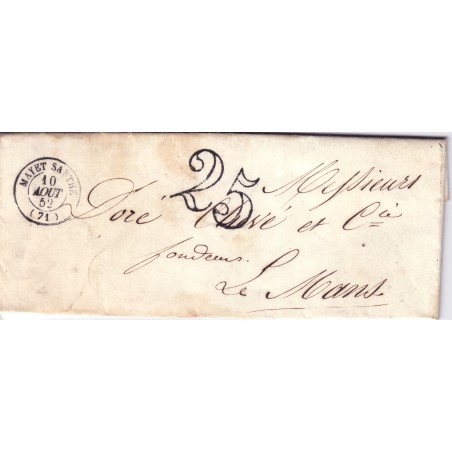 MAYET SARTHE
10
AOUT
52
(71)
25
Messieurs
Doré Chevé et Cie
fondeurs
Le Mans